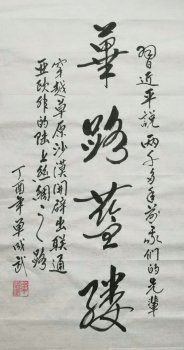 習近平說兩千多年前我們的先輩
蓽路藍縷
穿越草原沙漠開辟出聯通
亞歐非的陸上絲綢之路
丁酉年單成武